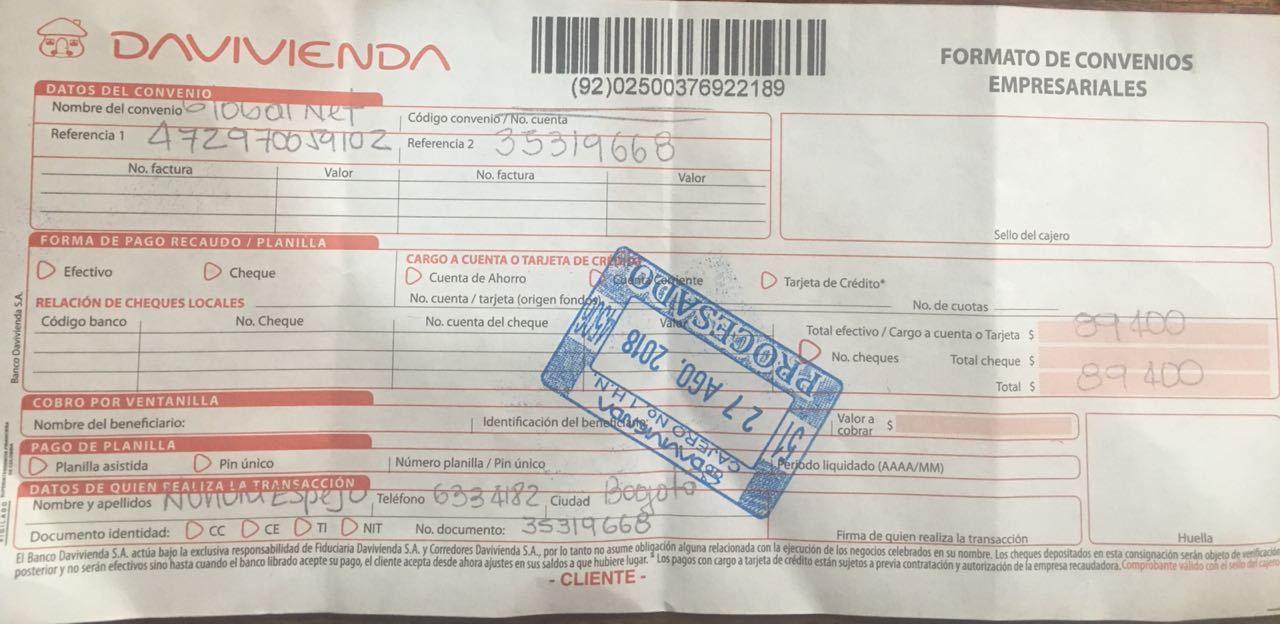 DAVIVIENDA
(92)02500376922189
FORMATO DE CONVENIOS
EMPRESARIALES
DATOS DEL CONVENIO
Nombre del convenio Global Net
Código convenio / No. cuenta
Referencia 1 472970059102 Referencia 2 35319668
No. factura Valor No. factura Valor
Sello del cajero
FORMA DE PAGO RECAUDO / PLANILLA
CARGO A CUENTA O TARJETA DE CRÉDITO
Efectivo Cheque Cuenta de Ahorro Cuenta Corriente Tarjeta de Crédito*
No. cuenta / tarjeta (origen fondos) No. de cuotas
RELACIÓN DE CHEQUES LOCALES
Código banco No. Cheque No. cuenta del cheque Valor
Total efectivo / Cargo a cuenta o Tarjeta $ 89 400
No. cheques Total cheque $
Total $ 89 400
PROCESADO
27 AGO. 2018
31
CAJERO No 1 H.N.
DAVIVIENDA
COBRO POR VENTANILLA
Nombre del beneficiario: Identificación del beneficiario Valor a cobrar $
PAGO DE PLANILLA
Planilla asistida Pin único Número planilla / Pin único Periodo liquidado (AAAA/MM)
DATOS DE QUIEN REALIZA LA TRANSACCIÓN
Nombre y apellidos Espejo Teléfono 6334182 Ciudad Bogota
Documento identidad: CC CE TI NIT No. documento: 35319668
Firma de quien realiza la transacción
Huella
El Banco Davivienda S.A. actúa bajo la exclusiva responsabilidad de Fiduciaria Davivienda S.A. y Corredores Davivienda S.A., por lo tanto no asume obligación alguna relacionada con la ejecución de los negocios celebrados en su nombre. Los cheques depositados en esta consignación serán objeto de verificación
posterior y no serán efectivos sino hasta cuando el banco librado acepte su pago, el cliente acepta desde ahora ajustes en sus saldos a que hubiere lugar. *Los pagos con cargo a tarjeta de crédito están sujetos a previa contratación y autorización de la empresa recaudadora. Comprobante válido con el sello del cajero
- CLIENTE -
Banco Davivienda S.A.
VIGILADO